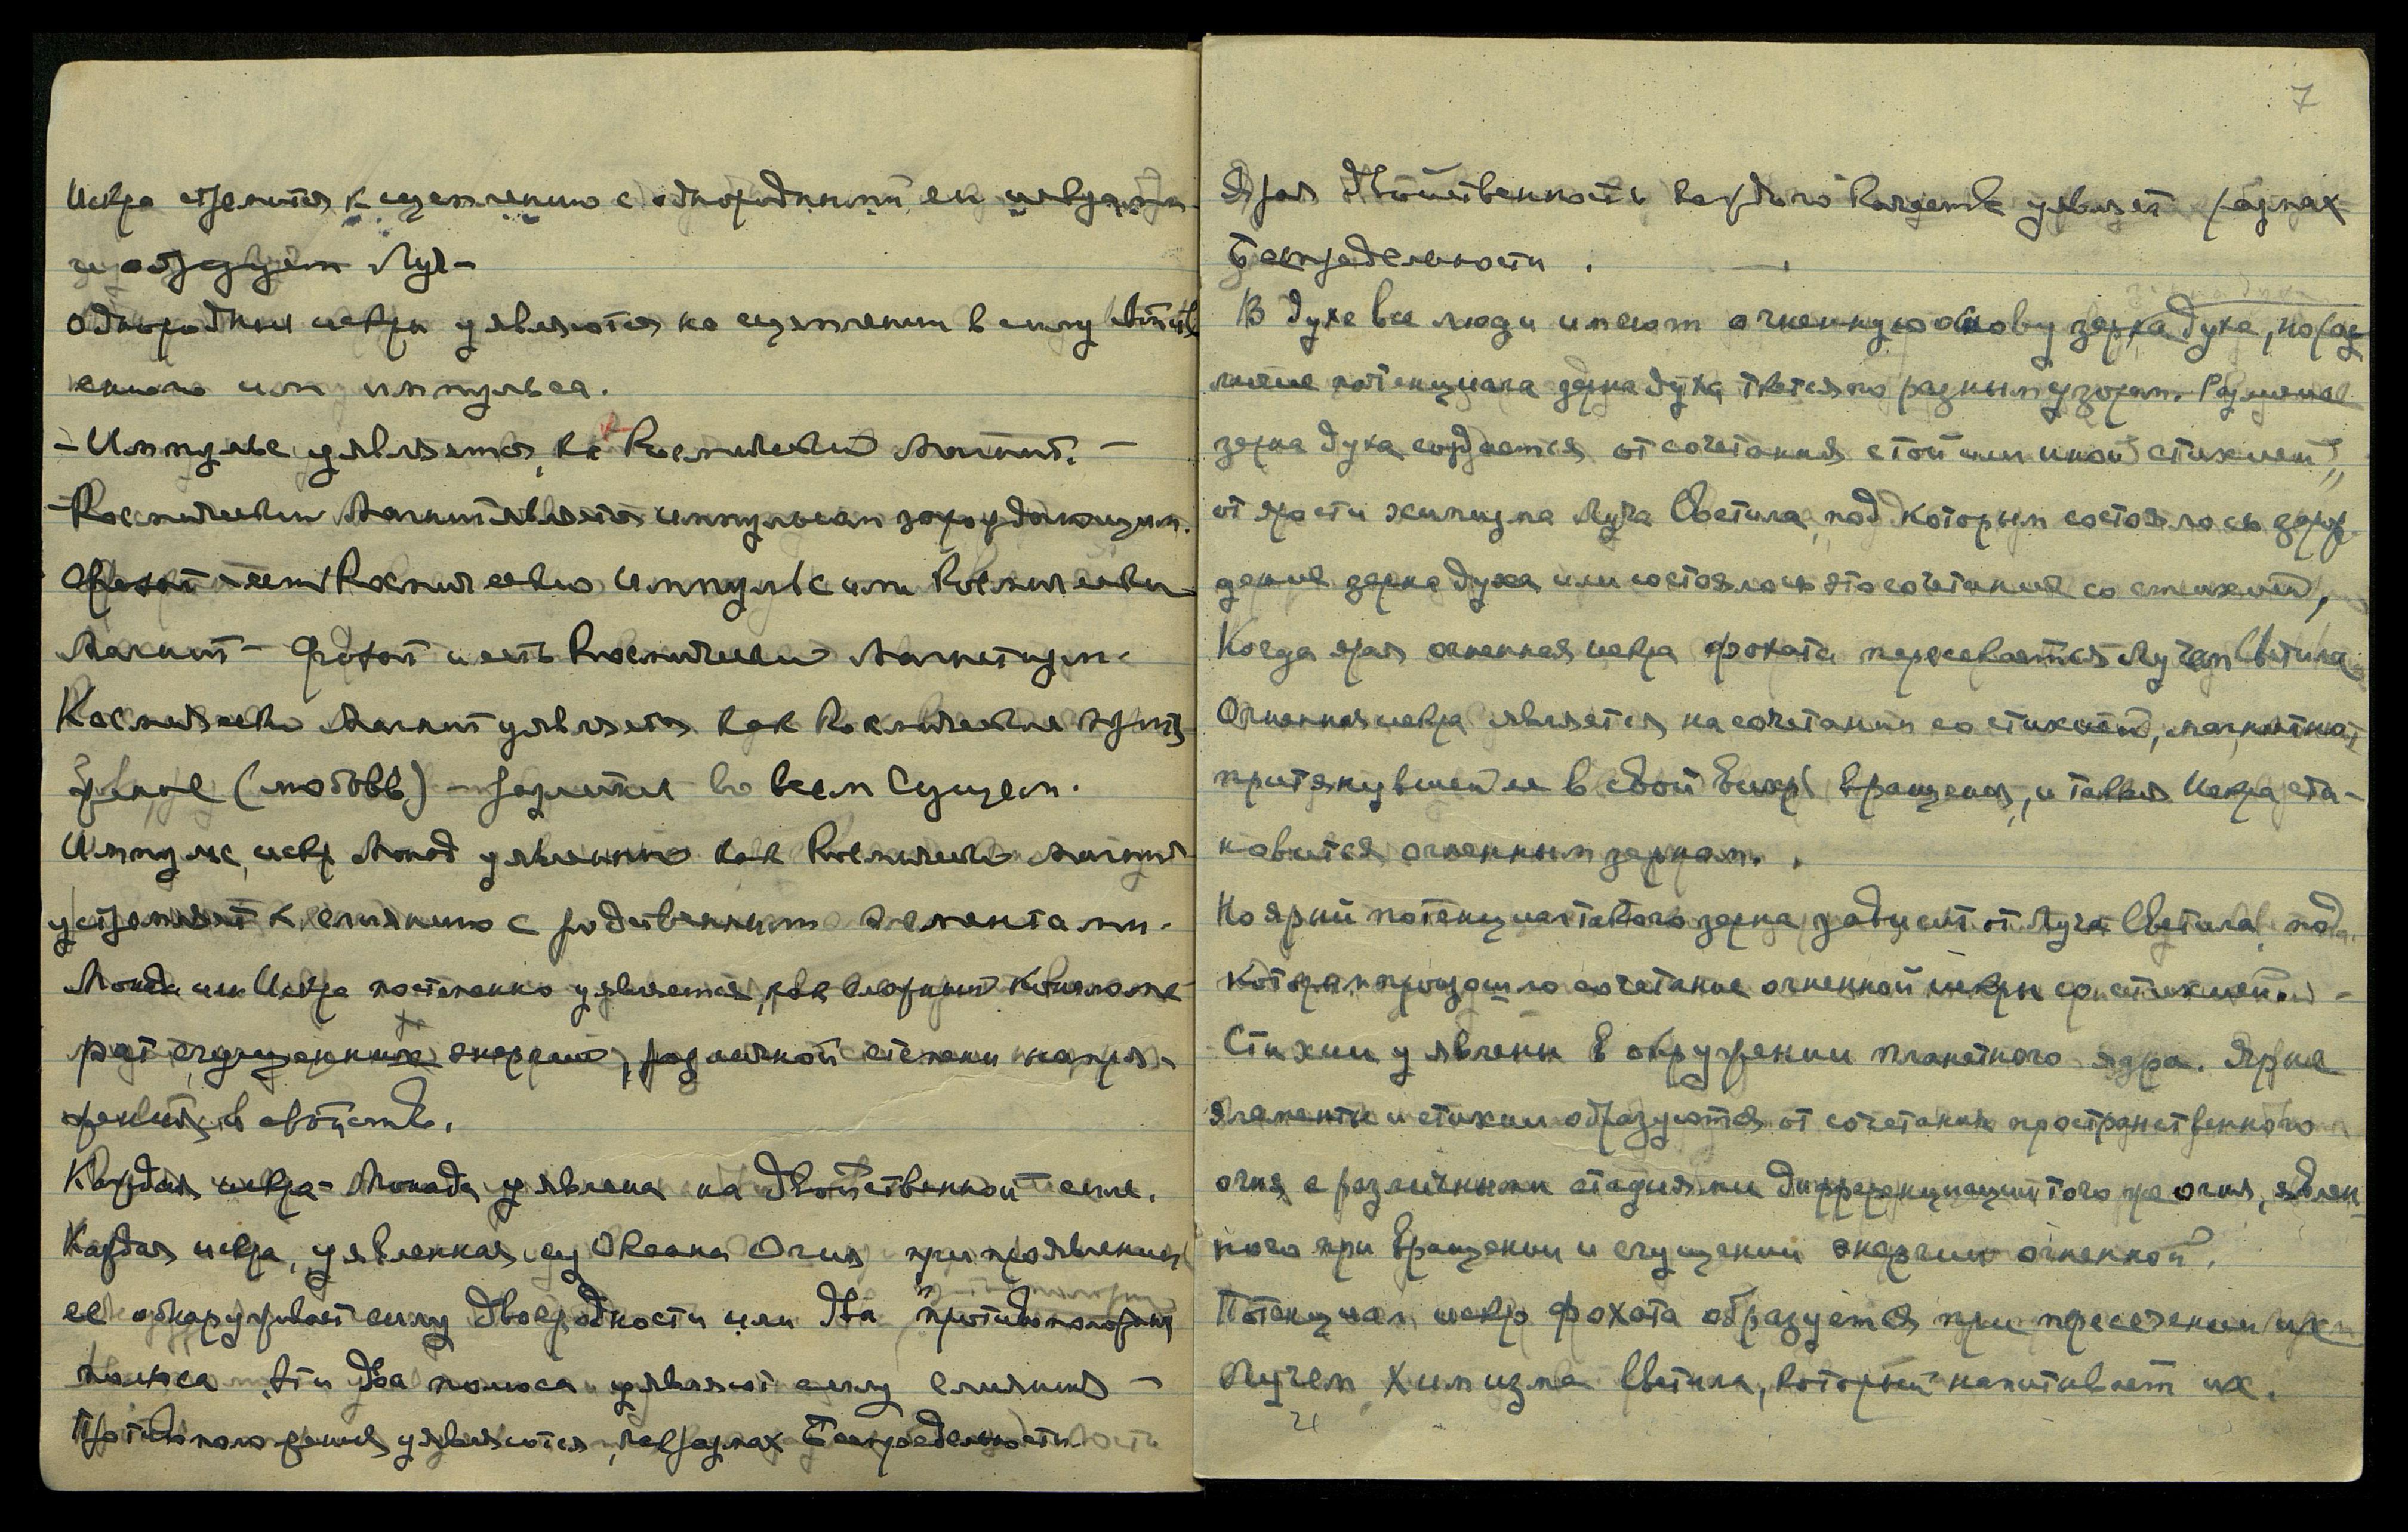 Искра стремится к сцеплению с однородными ей искрами
и образует Луч –
Однородные искры уявляются на сцеплении в силу
енного им импульса.
– Импульс уявляется, как Космический Магнит. –
– Космический Магнит является импульсом зарождающим.
Фохат есть Космический Импульс или Космический
Магнит – Фохат и есть Космический Магнетизм.
Космический Магнит уявляется как Космическое
(любовь) – во всем Сущем.
Импульс искр Монад уявленный как Космический Магнит
устремляет к слиянию с родственными элементами.
Монада или Искра постепенно уявляется, как конгломе-
рат сгущенных энергий, различной степени напря-
жения и свойств.
Каждая искра – Монада уявлена на двойственной силе.
Каждая искра, уявленная из Океана Огня при проявлении
ее обнаруживает силу двуродности или два противоположных
полюса. Эти два полюса уявляют силу слияния –
Противоположения уявляются, как размах Беспредельности
7
Ярая Двойственность каждого Космоса уявляет размах
Беспредельности.
В духе все люди имеют огненную основу зерна духа, но раз-
личие потенциала зерна духа ткется по разным узорам. Различие
зерна духа создается от сочетания с той или иной стихией,
от ярости химизма Луча Светила, под которым состоялось зарож-
дение зерна духа или состоялось это сочетание со стихией,
Когда ярая огненная искра фохата пересекается Лучом Светила
Огненная искра является на сочетании со стихией, магнитно
притянувшей ее в свой вихрь вращения, и такая Искра ста-
новится огненным зерном.
Но ярый потенциал такого зерна зависит от Луча Светила, под
которым произошло сочетание огненной искры со стихией. –
Стихии уявлены в окружении планетного ядра. Ярые
элементы и стихии образуются от сочетания пространственного
огня с различными стадиями дифференциации того же огня, явлен-
ного при вращении и сгущении энергии огненной.
Потенциал искр фохата образуется при пересечении их
Лучем химизма Светила, который напитывает их.